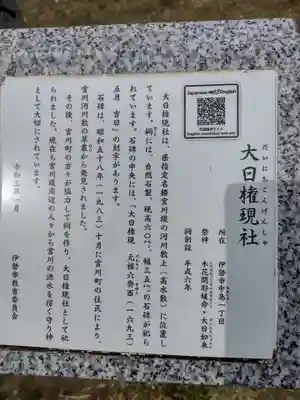 Japanese English
大日権現社
だいにちごんげんしゃ
所在　伊勢市中島一丁目
祭神　木花開耶姫命・大日如来
祠創設　平成六年
大日権現社は、県指定名勝宮川堤の河川敷上（高水敷）に位置し
ています。祠には、自然石製、現高六〇㌢、幅三五㌢の石碑が祀ら
れています。石碑の中央には、「大日権現　元禄六癸酉（一六九三）
五月　吉日」の刻字があります。
石碑は、昭和五十八年（一九八三）十月に宮川町の住民により、
宮川河川敷の草叢から発見されました。
その後、宮川町の方々が協力して祠を作り、大日権現社として祀
られました。現在も宮川堤周辺の人々から宮川の洪水を防ぐ守り神
として大切にされています。
令和三年一月
伊勢市教育委員会